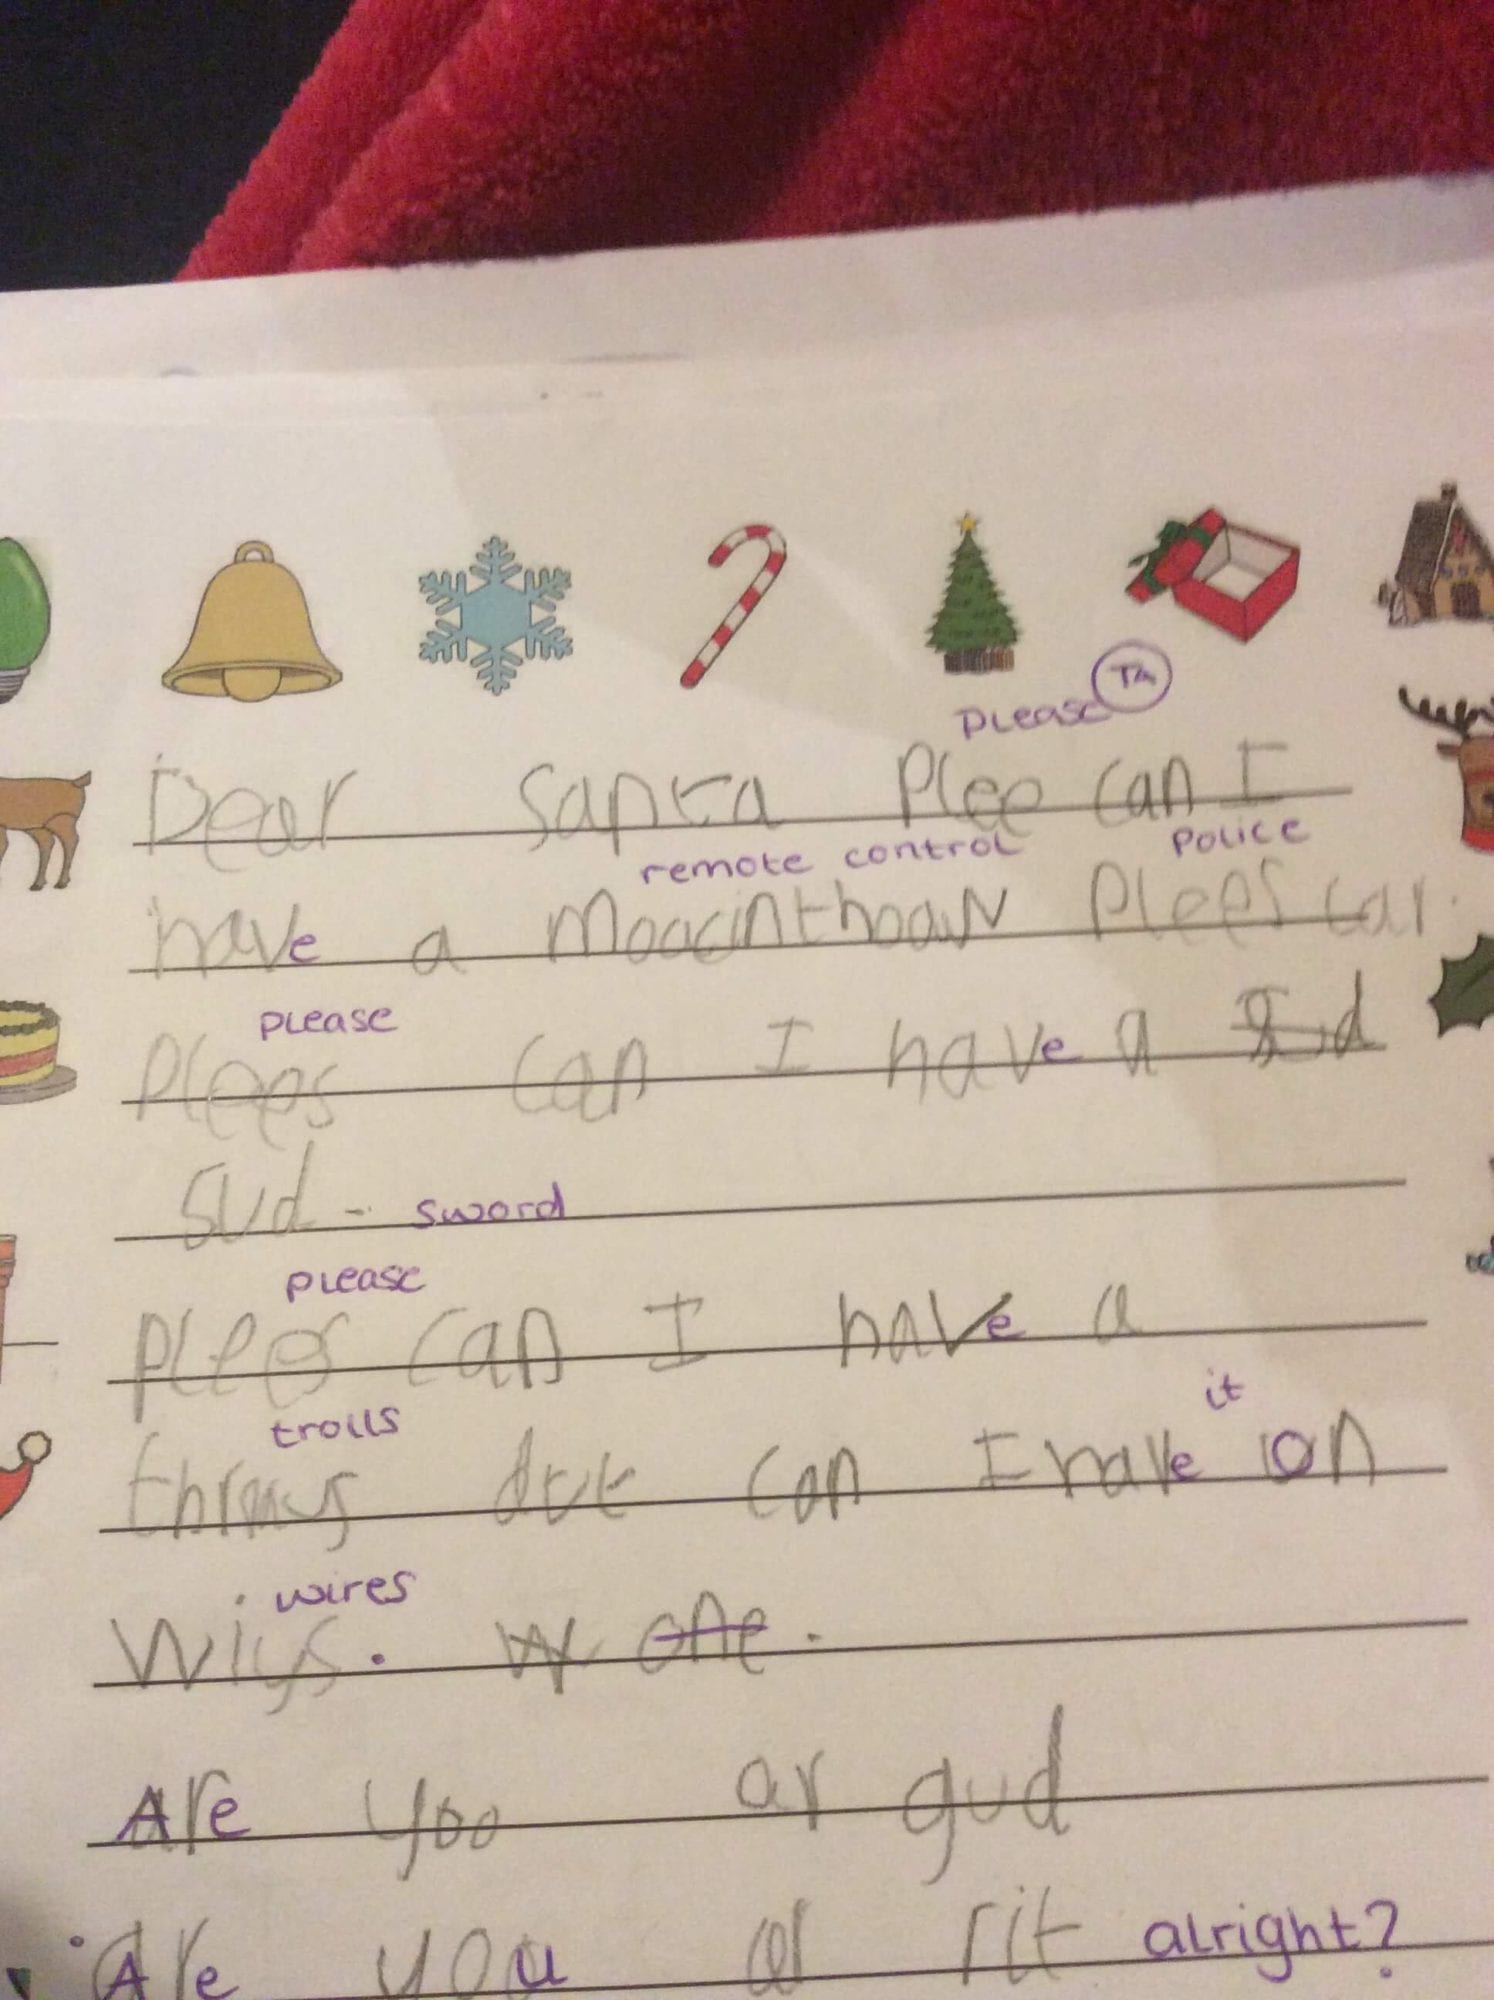 please TA
Dear Santa Plee can I
remote control Police
have a Moacinthoaw Plees car.
please
Plees can I have a
sud - sword
please
plees can I have a
trolls it
but can I have on
wires
Wiys. one.
Are yoo ar gud
Are you al rit alright?